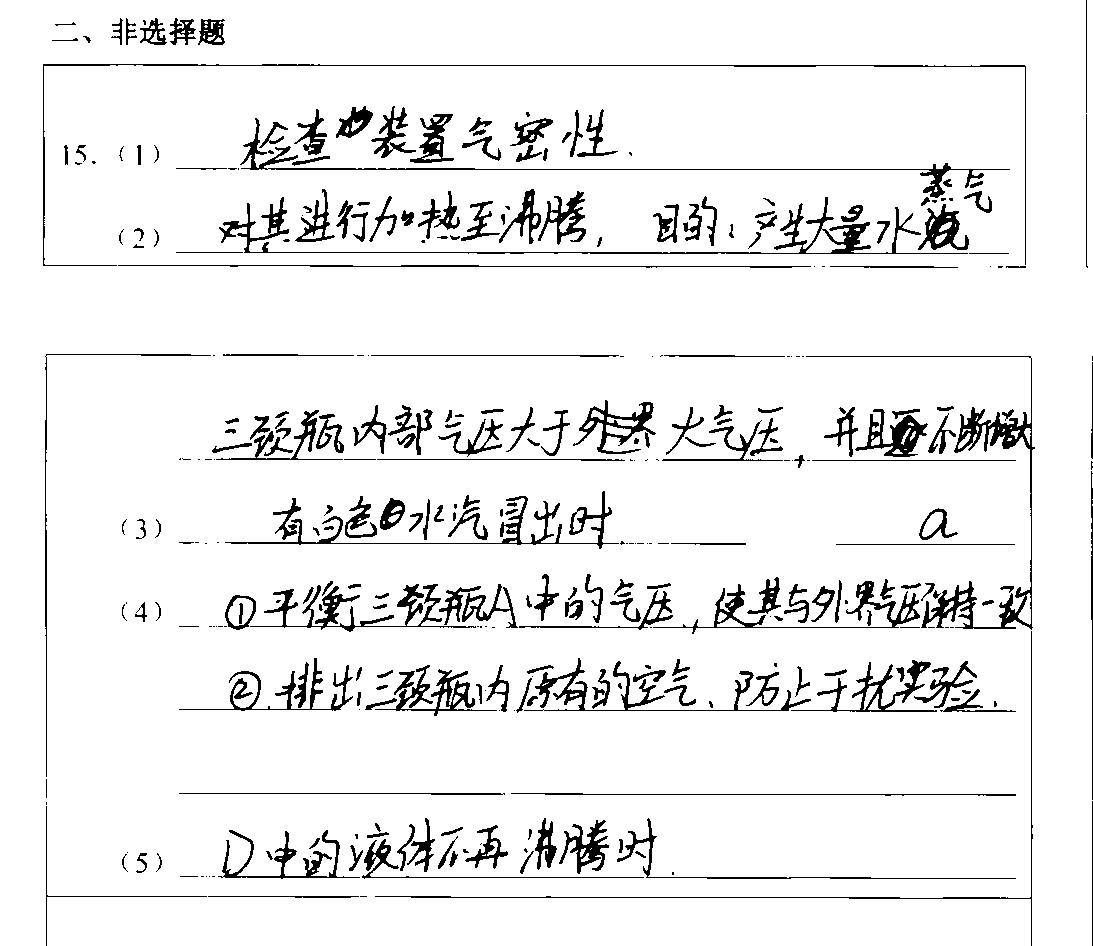 二、非选择题
15.(1) 检查装置气密性.
(2) 对其进行加热至沸腾, 目的:产生大量水蒸气
三颈瓶内部气压大于外界大气压,并且不断增大
(3) 有白色水汽冒出时 a
(4) ①平衡三颈瓶A中的气压,使其与外界气压保持一致
②.排出三颈瓶内原有的空气、防止干扰实验.
(5) D中的液体不再沸腾时.